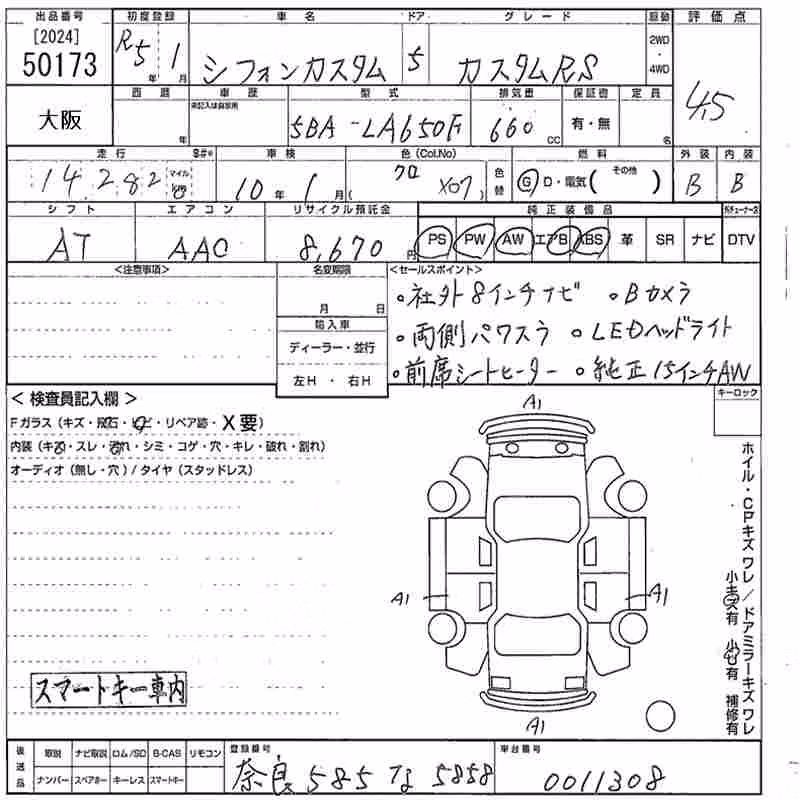 出品番号 初度登録 車名 ドア グレード 駆動 評価点
[2024] 50173 R5年 1月 シフォンカスタム 5 カスタムRS 2WD・4WD 4.5
大阪 西暦 年 車歴 未記入は自家用 型式 5BA-LA650F 排気量 660 CC 保証書 有・無 定員 名
走行 14,282 マイル km 車検 10年 1月 色(Col.No) クロ X07 色替 燃料 G D・電気( その他 ) 外装 B 内装 B
シフト AT エアコン AAC リサイクル預託金 8,670円 純正装備品 PS PW AW エアB ABS 革 SR ナビ DTV
<注意事項> 名変期限 月 日 <セールスポイント>
・社外8インチナビ ・Bカメラ
輸入車
ディーラー・並行
・両側パワスラ ・LEDヘッドライト
左H・右H
・前席シートヒーター ・純正15インチAW
キーロック
<検査員記入欄>
Fガラス(キズ・飛石・ヒビ・リペア跡・X要)
内装(キズ・スレ・汚れ・シミ・コゲ・穴・キレ・破れ・割れ)
オーディオ(無し・穴)/タイヤ(スタッドレス)
A1
A1
A1
A1
ホイル・CPキズワレ/ドアミラーキズワレ
小キズ有 小凹有 補修有
スマートキー車内
後送品 取説 ナビ取説 ロム/SD B-CAS リモコン
ナンバー スペアホー キーレス スマートキー
登録番号 奈良 585 な 5858
車台番号 0011308